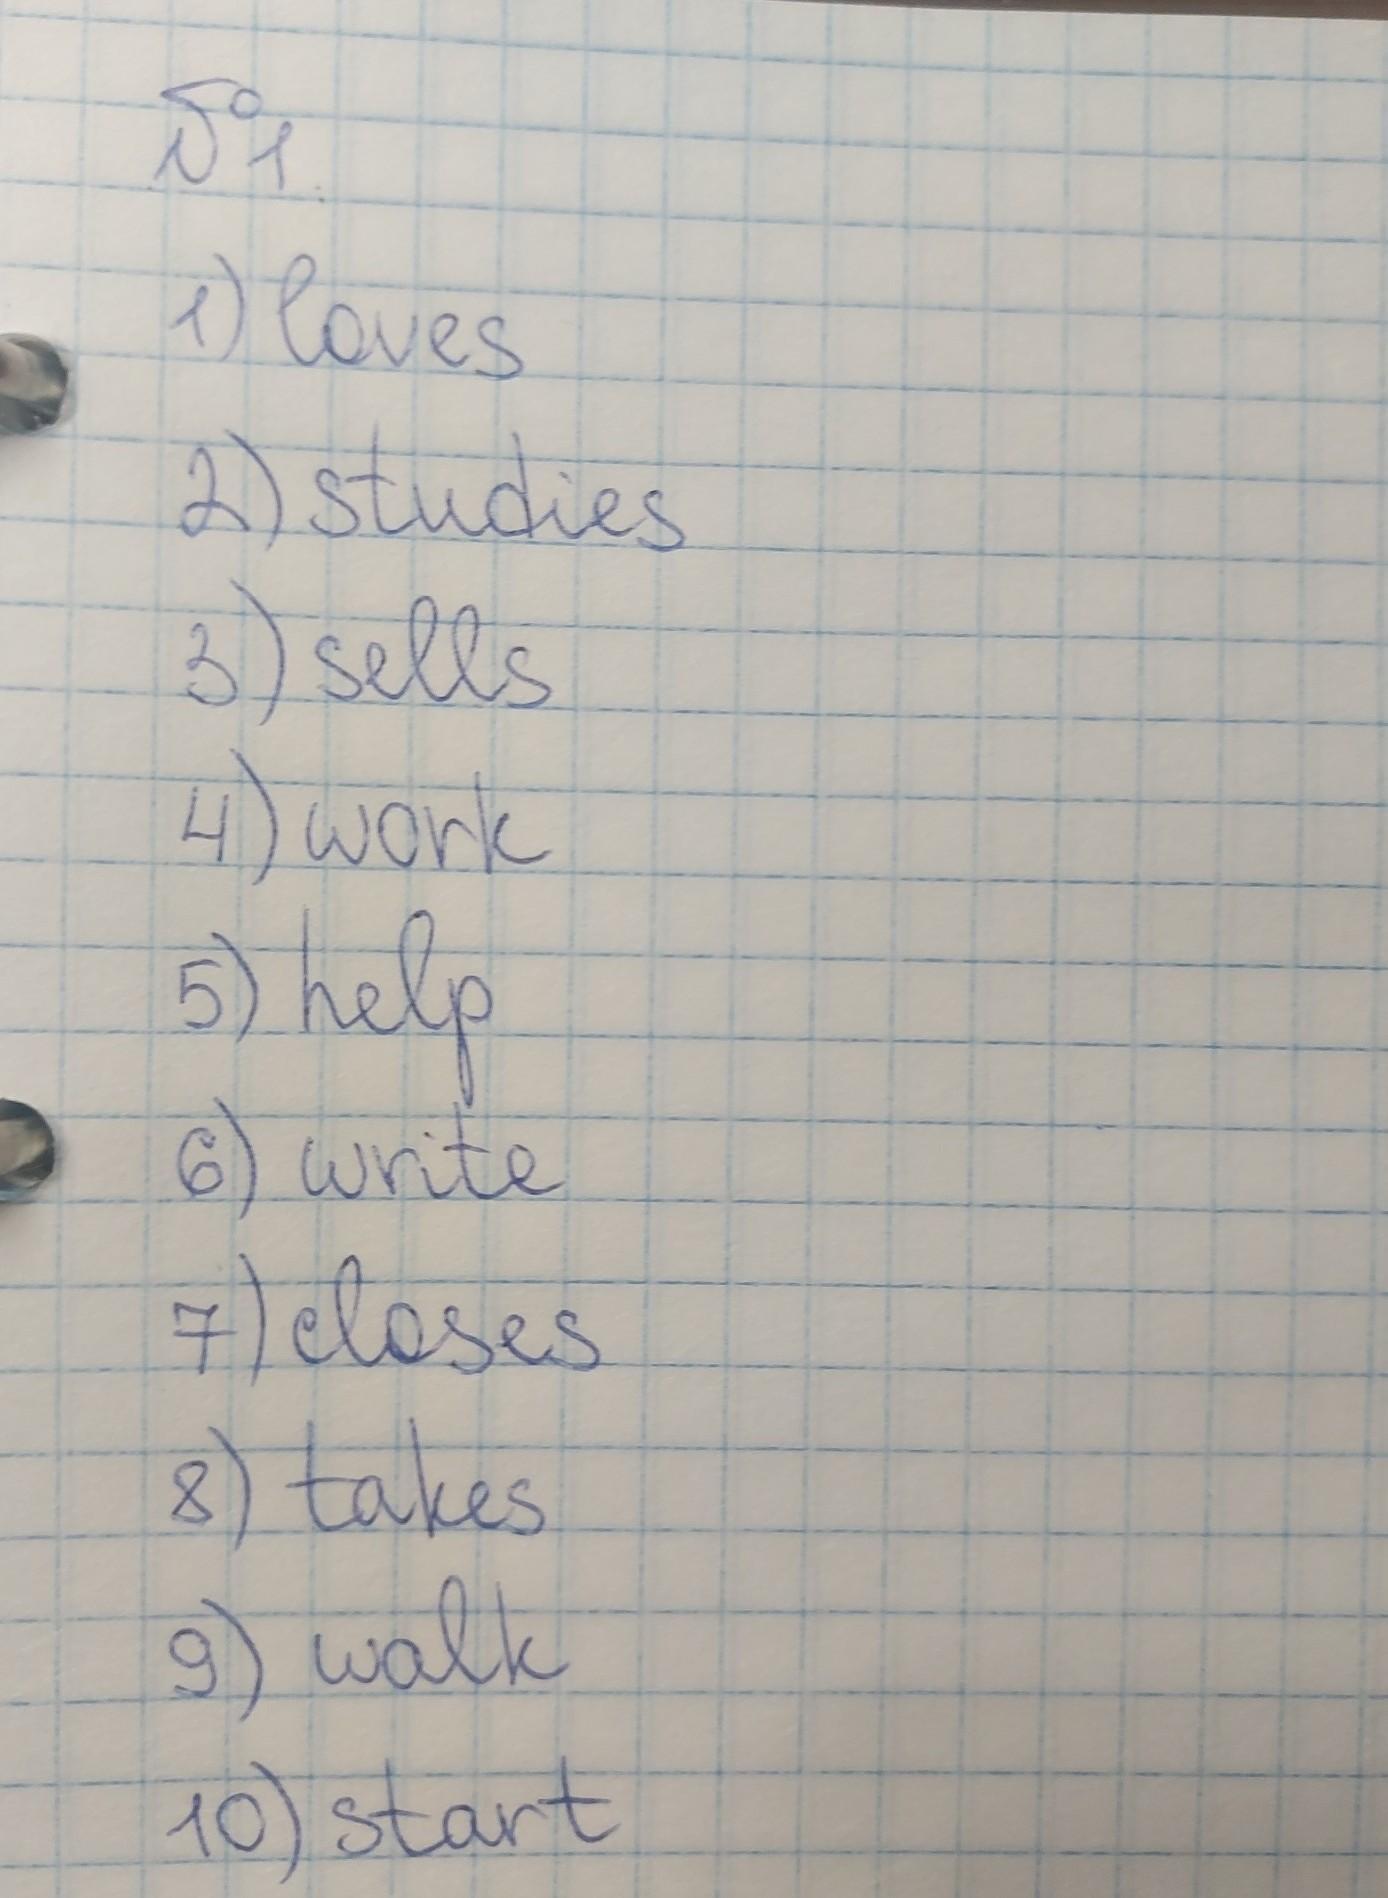 №1.
1) loves
2) studies
3) sells
4) work
5) help
6) write
7) closes
8) takes
9) walk
10) start